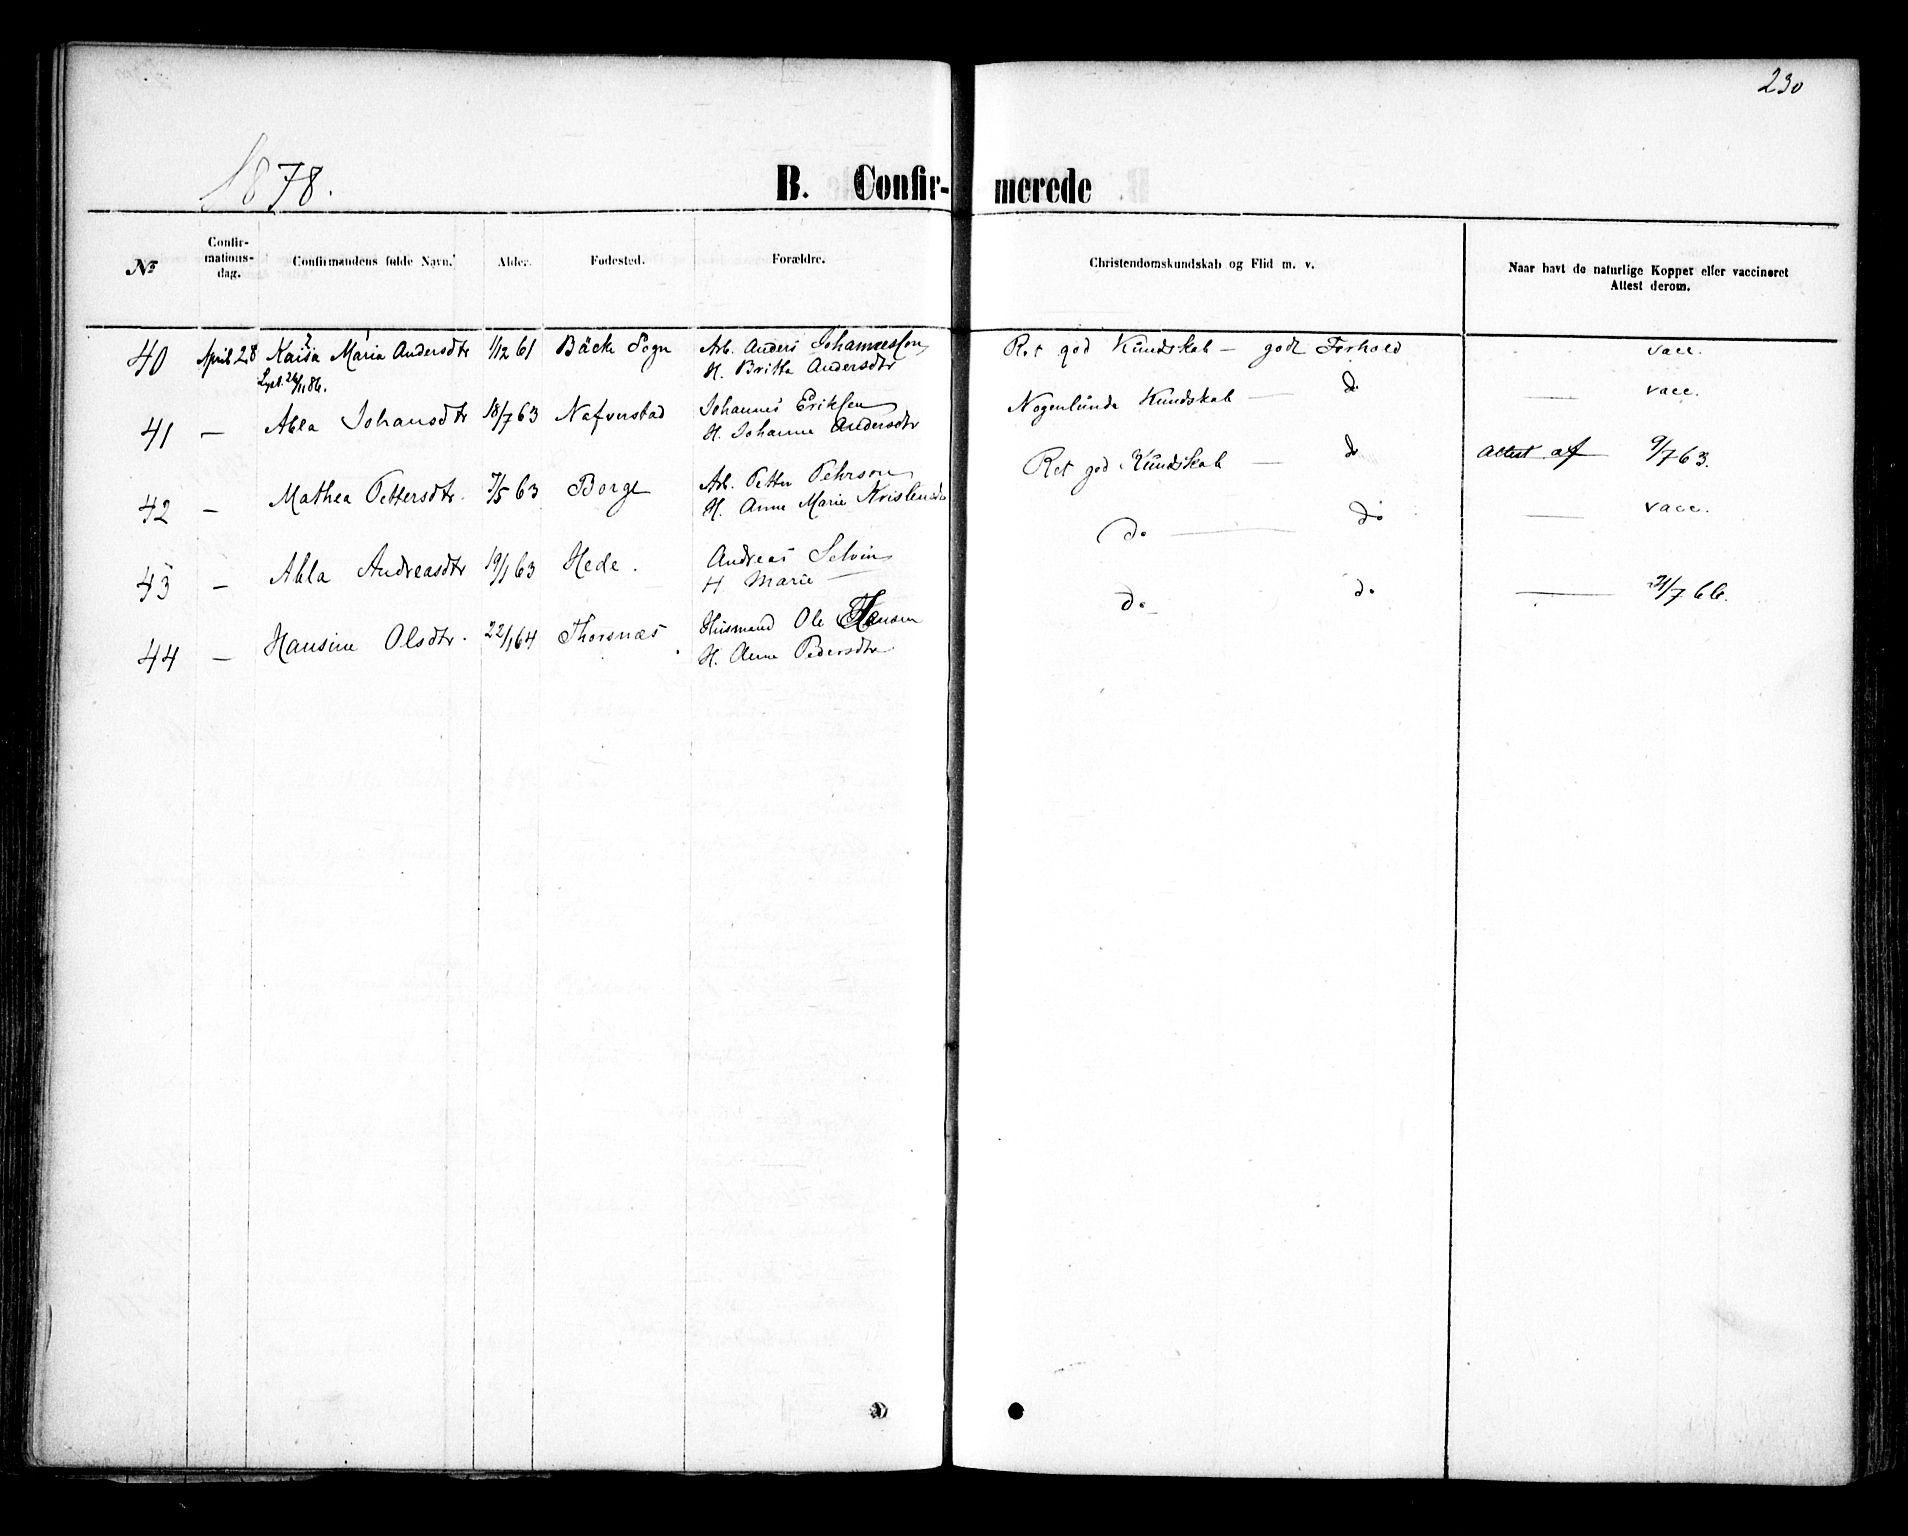 230
1878.
B. Confir- merede
No Confir- mations- dag. Confirmandens fulde Navn. Alder. Fødested. Forældre. Christendomskundskab og Flid m. v. Naar havt de naturlige Kopper eller vaccineret Attest derom.
40 April 28 Kaisa Maria Andersdtr 1/12 61 Bäcke Sogn Arb. Anders Johannesson Ret god Kundskab — godt Forhold vacc.
Lyst. 24/1 86. H. Britta Andersdtr
41 — Abla Johansdtr 18/7 63 Nafverstad Johannes Eriksen Nogenlunde Kundskab — do — vacc.
H. Johanne Andersdtr
42 — Mathea Pettersdtr. 7/5 63 Borge Arb. Petter Pehrson Ret god Kundskab — do Attest af 9/7 63.
H. Anne Marie Kristensdr
43 — Abla Andreasdtr 19/1 63 Hede. Andreas Selvin do — do — vacc.
H Marie —
44 — Hansine Olsdtr. 22/1 64 Thorsnæs Husmand Ole Hansen do do — 21/7 66.
H. Anne Pedersdtr